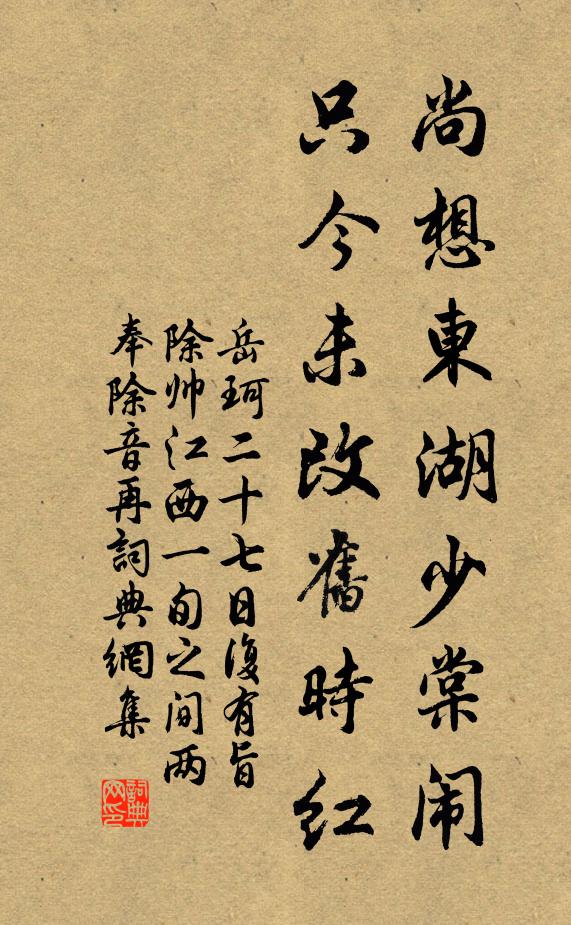 尚想東湖少棠闹
只今未改舊時红
岳珂二十七日復有旨
除帅江西一旬之间两
奉除音再詞典網集
詞典网印